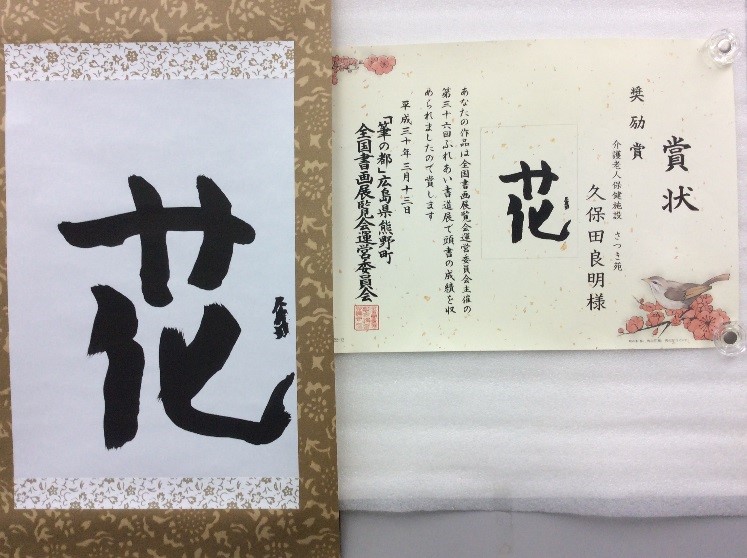 花
賞状
奨励賞
介護老人保健施設 さつき苑
久保田良明様
花
あなたの作品は全国書画展覧会運営委員会主催の
第三十六回ふれあい書道展で頭書の成績を収
められましたので賞します
平成三十年三月十三日
「筆の都」広島県熊野町
全国書画展覧会運営委員会